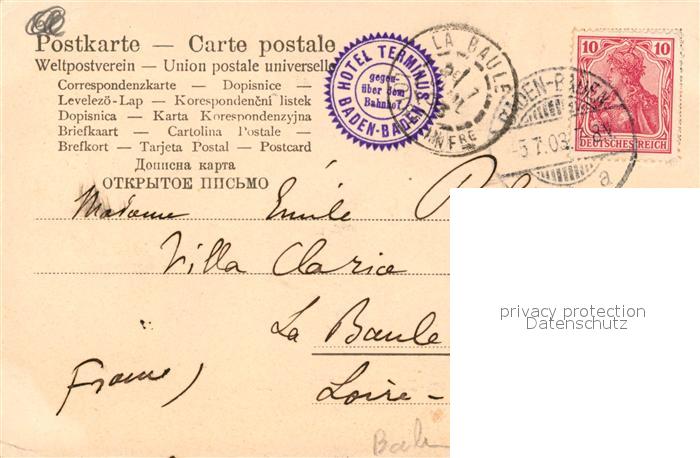 Postkarte — Carte postale
Weltpostverein — Union postale universelle
Correspondenzkarte — Dopisnice —
Levelezö-Lap — Korespondenční listek
Dopisnica — Karta Korespondenzyjna
Briefkaart — Cartolina Postale —
Brefkort — Tarjeta Postal — Postcard
Дописна карта
ОТКРЫТОЕ ПИСЬМО
HOTEL TERMINUS
gegen-
über dem
Bahnhof
BADEN-BADEN
LA BAULE
BADEN-BADEN
5.7.03
a
10 10
DEUTSCHES REICH
Madame Emile
Villa Clarice
La Baule
Loire-
France)
privacy protection
Datenschutz